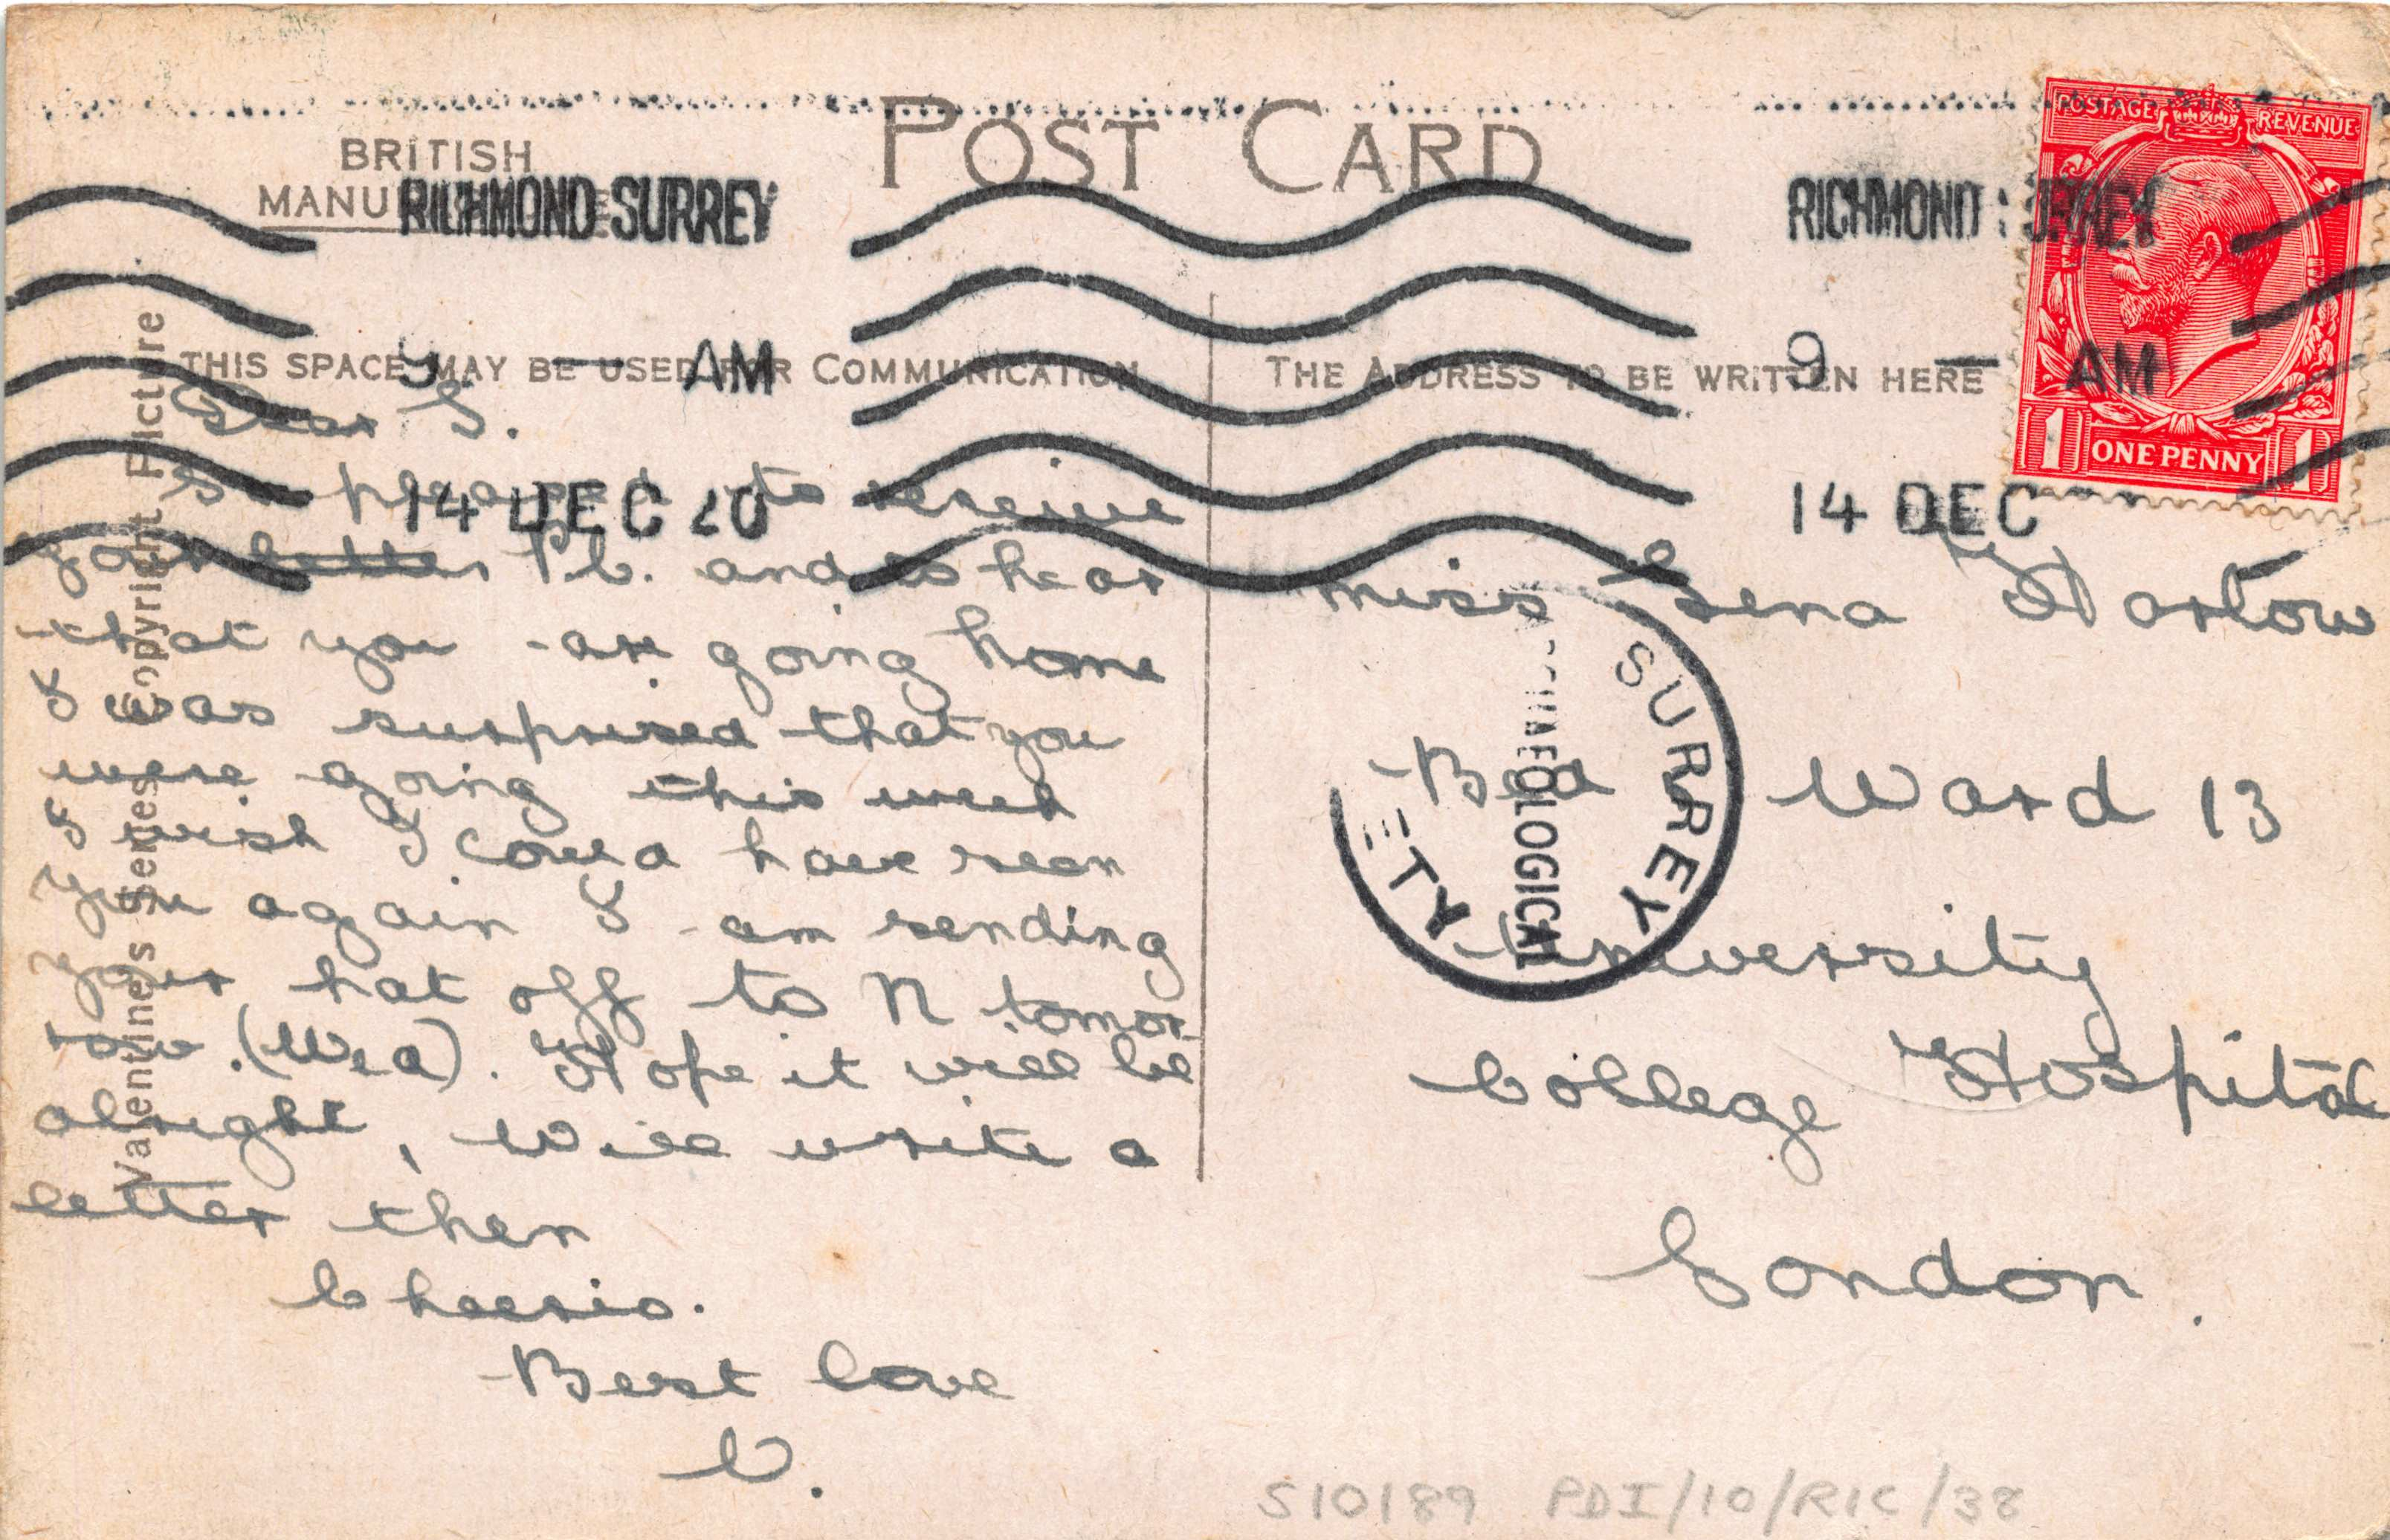 POST CARD
BRITISH
MANU
RICHMOND SURREY
RICHMOND SURREY
POSTAGE REVENUE
1 ONE PENNY 1
9 — AM
9 — AM
14 DEC 20
14 DEC
THIS SPACE MAY BE USED FOR COMMUNICATION
THE ADDRESS TO BE WRITTEN HERE
Valentine's Series Copyright Picture
Dear L.
So pleased to receive
your letter P.C. and to hear
that you are going home
I was surprised that you
were going this week
I wish I could have seen
you again I am sending
your hat off to N tomor-
row. (Wed). Hope it will be
alright, Will write a
letter then
Cheerio.
Best love
C.
Miss Lena Harlow
Bed Ward 13
University
College Hospital
London.
SURREY
ARCHAEOLOGICAL
ETY
S10189 PDI/10/RIC/38